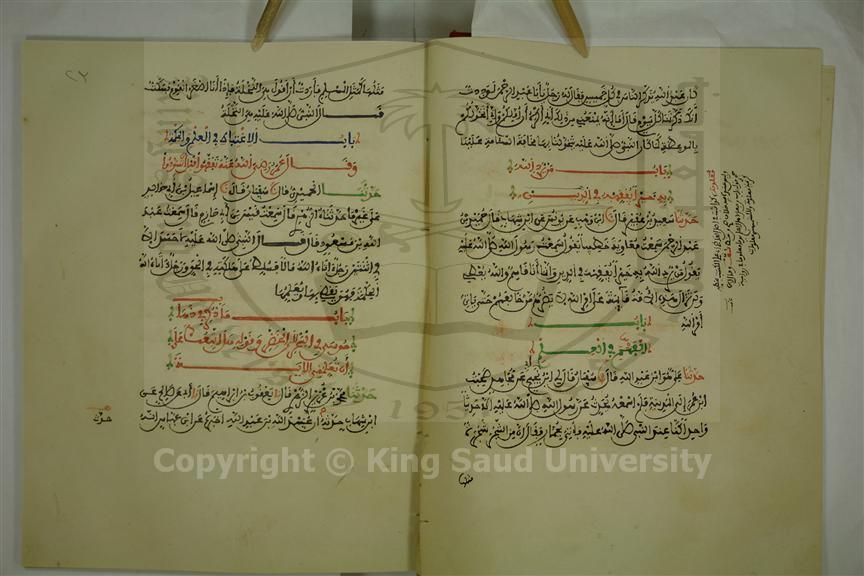 كان عبد الله يذكر الناس في كل خميس فقال له رجل يا با عبد الرحمن لوددت
أنك ذكرتنا كل يوم قال أما إنه يمنعني من ذلك أني أكره أن أملكم وإني أتخولكم
بالموعظة كما كان النبي صلى الله عليه يتخولنا بها مخافة السآمة علينا
باب من يرد الله
به خيرا يفقهه في الدين
حدثنا سعيد بن عفير قال نا ابن وهب عن يونس عن ابن شهاب قال قال حميد بن
عبد الرحمن سمعت معاوية خطيبا يقول سمعت رسول الله صلى الله عليه
يقول من يرد الله به خيرا يفقهه في الدين وإنما أنا قاسم والله يعطي
ولن تزال هذه الأمة قائمة على أمر الله لا يضرهم من خالفهم حتى يأتي
أمر الله
باب
الفهم في العلم
حدثنا علي هو ابن عبد الله قال نا سفيان قال قال لي ابن أبي نجيح عن مجاهد صحبت
ابن عمر إلى المدينة فلم أسمعه يحدث عن رسول الله صلى الله عليه إلا حديثا
واحدا كنا عند النبي صلى الله عليه فأتي بجمار فقال إن من الشجر شجرة
مثلها
مثلها كمثل المسلم فأردت أن أقول هي النخلة فإذا أنا أصغر القوم فسكت
قال النبي صلى الله عليه هي النخلة
باب الاغتباط في العلم والحكمة
وقال عمر رضي الله عنه تفقهوا قبل أن تسودوا
حدثنا الحميدي قال نا سفيان قال نا إسماعيل بن أبي خالد
على غير ما حدثناه الزهري قال سمعت قيس بن أبي حازم قال سمعت عبد
الله بن مسعود قال قال النبي صلى الله عليه لا حسد إلا
في اثنتين رجل آتاه الله مالا فسلط على هلكته في الحق ورجل آتاه الله
الحكمة فهو يقضي بها ويعلمها
باب ما ذكر في ذهاب
موسى في البحر إلى الخضر وقوله هل أتبعك على
أن تعلمني الآية
حدثنا محمد بن غرير الزهري قال نا يعقوب بن إبراهيم قال نا أبي عن صالح عن
ابن شهاب حدثه أن عبيد الله بن عبد الله أخبره عن ابن عباس أنه
حدث
Copyright © King Saud University
195